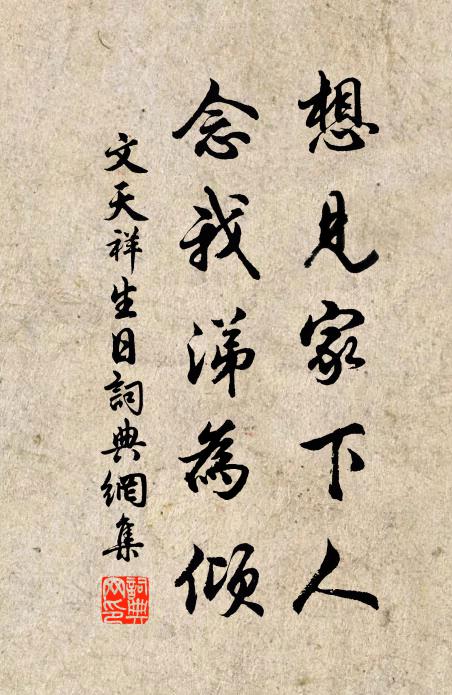 想見家下人
念我涕為傾
文天祥生日詞典網集
詞典網印